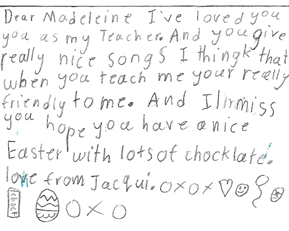 Dear Madeleine I've loved you
you as my Teacher. And you give
really nice songs I thingk that
when you teach me your really
friendly to me. And I'll miss
you hope you have a nice
Easter with lots of chocklate.
love from Jacqui. OXOX
OXO